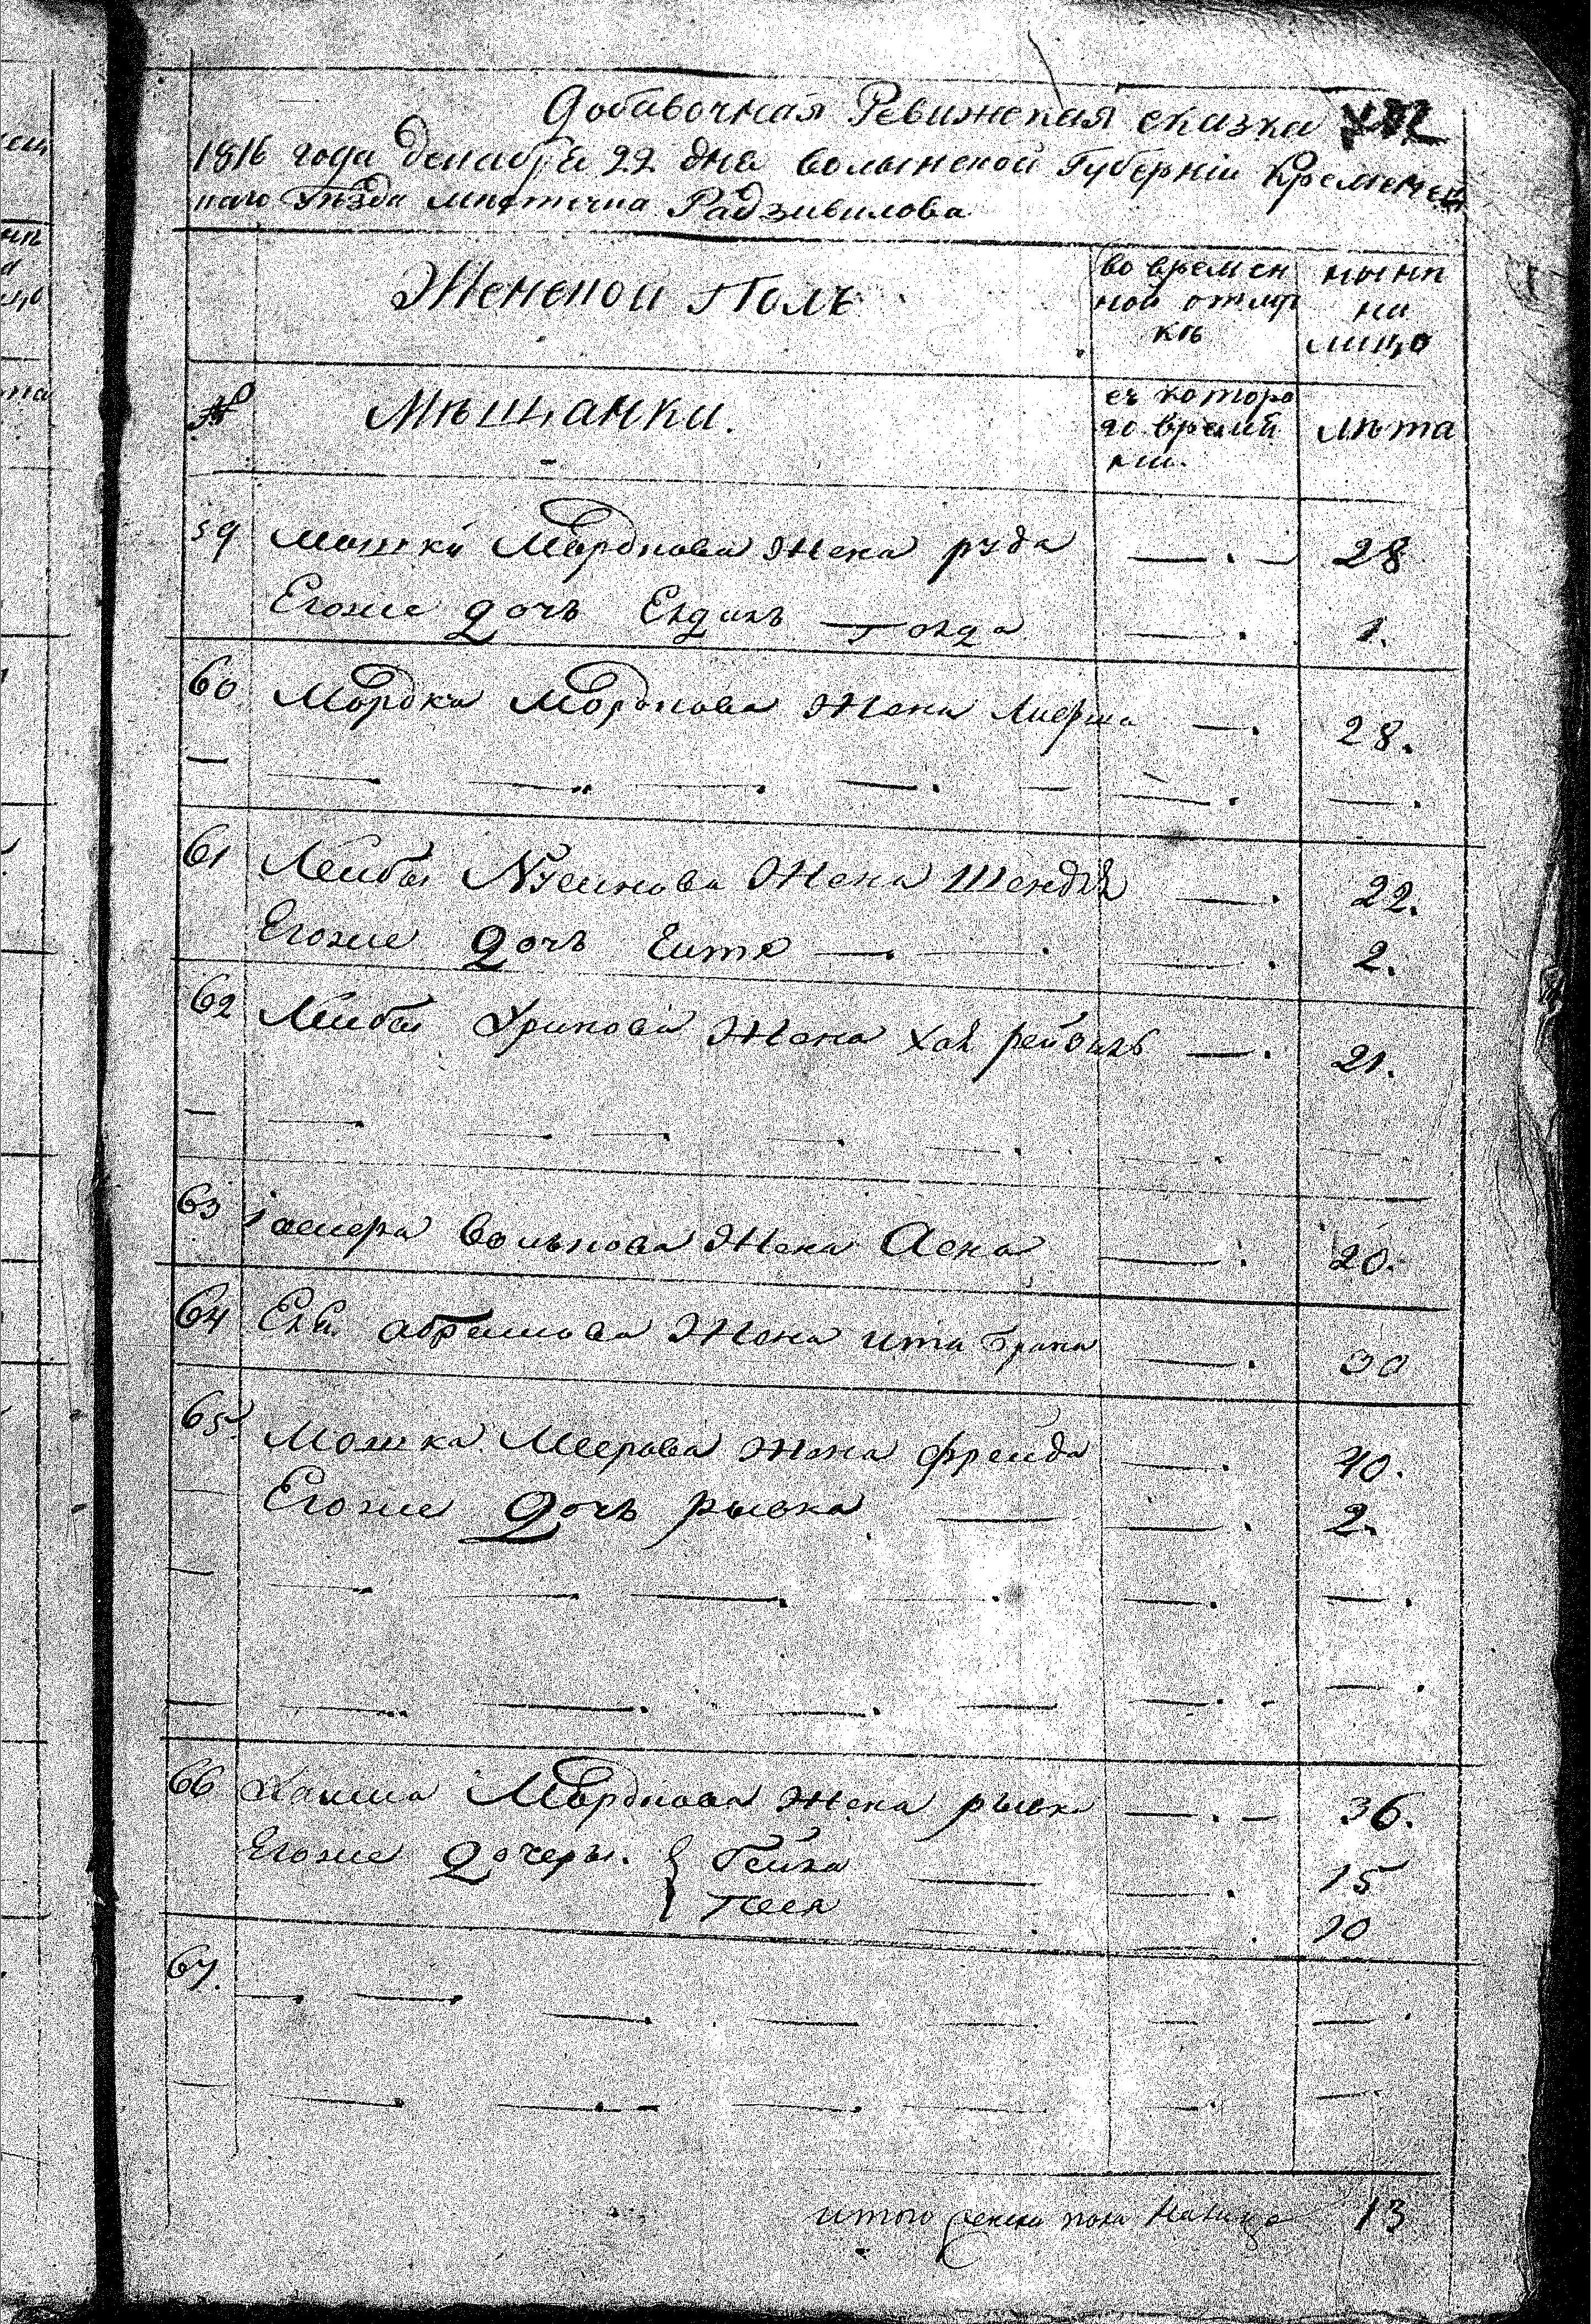 Добавочная Ревижская сказка
1816 года декабря 22 дня волынской Губернiи Кременец
каго Уѣзда мѣстечка Радзивилова
Женской Полъ
во времен
ной отлуч
кѣ
нынѣ
на
лицо
№
Мѣщанки.
съ которо
го времѣ
ни.
лѣта
59 Мошка Мордкова жена руда — . — 28
Егоже дочь Ендиль — . 1.
60 Мордка Мордкова жена — . 28.
61 Лейбы Нусинова жена Шендля — . 22.
Егоже дочь Еитя — . — . 2.
62 Лейбы жена Хая рейзиль — . 21.
63 волькова жена Асна — . 20.
64 абрамова жена ита брана — . 30
65. Мошка Меерова жена фрейда — . 40.
Егоже дочь рывка — — . 2.
66 Мордкова жена рывка — . — 36.
Егоже дочеры. { — — . 15
Песя — . 10
67.
итого женска пола налицо 13